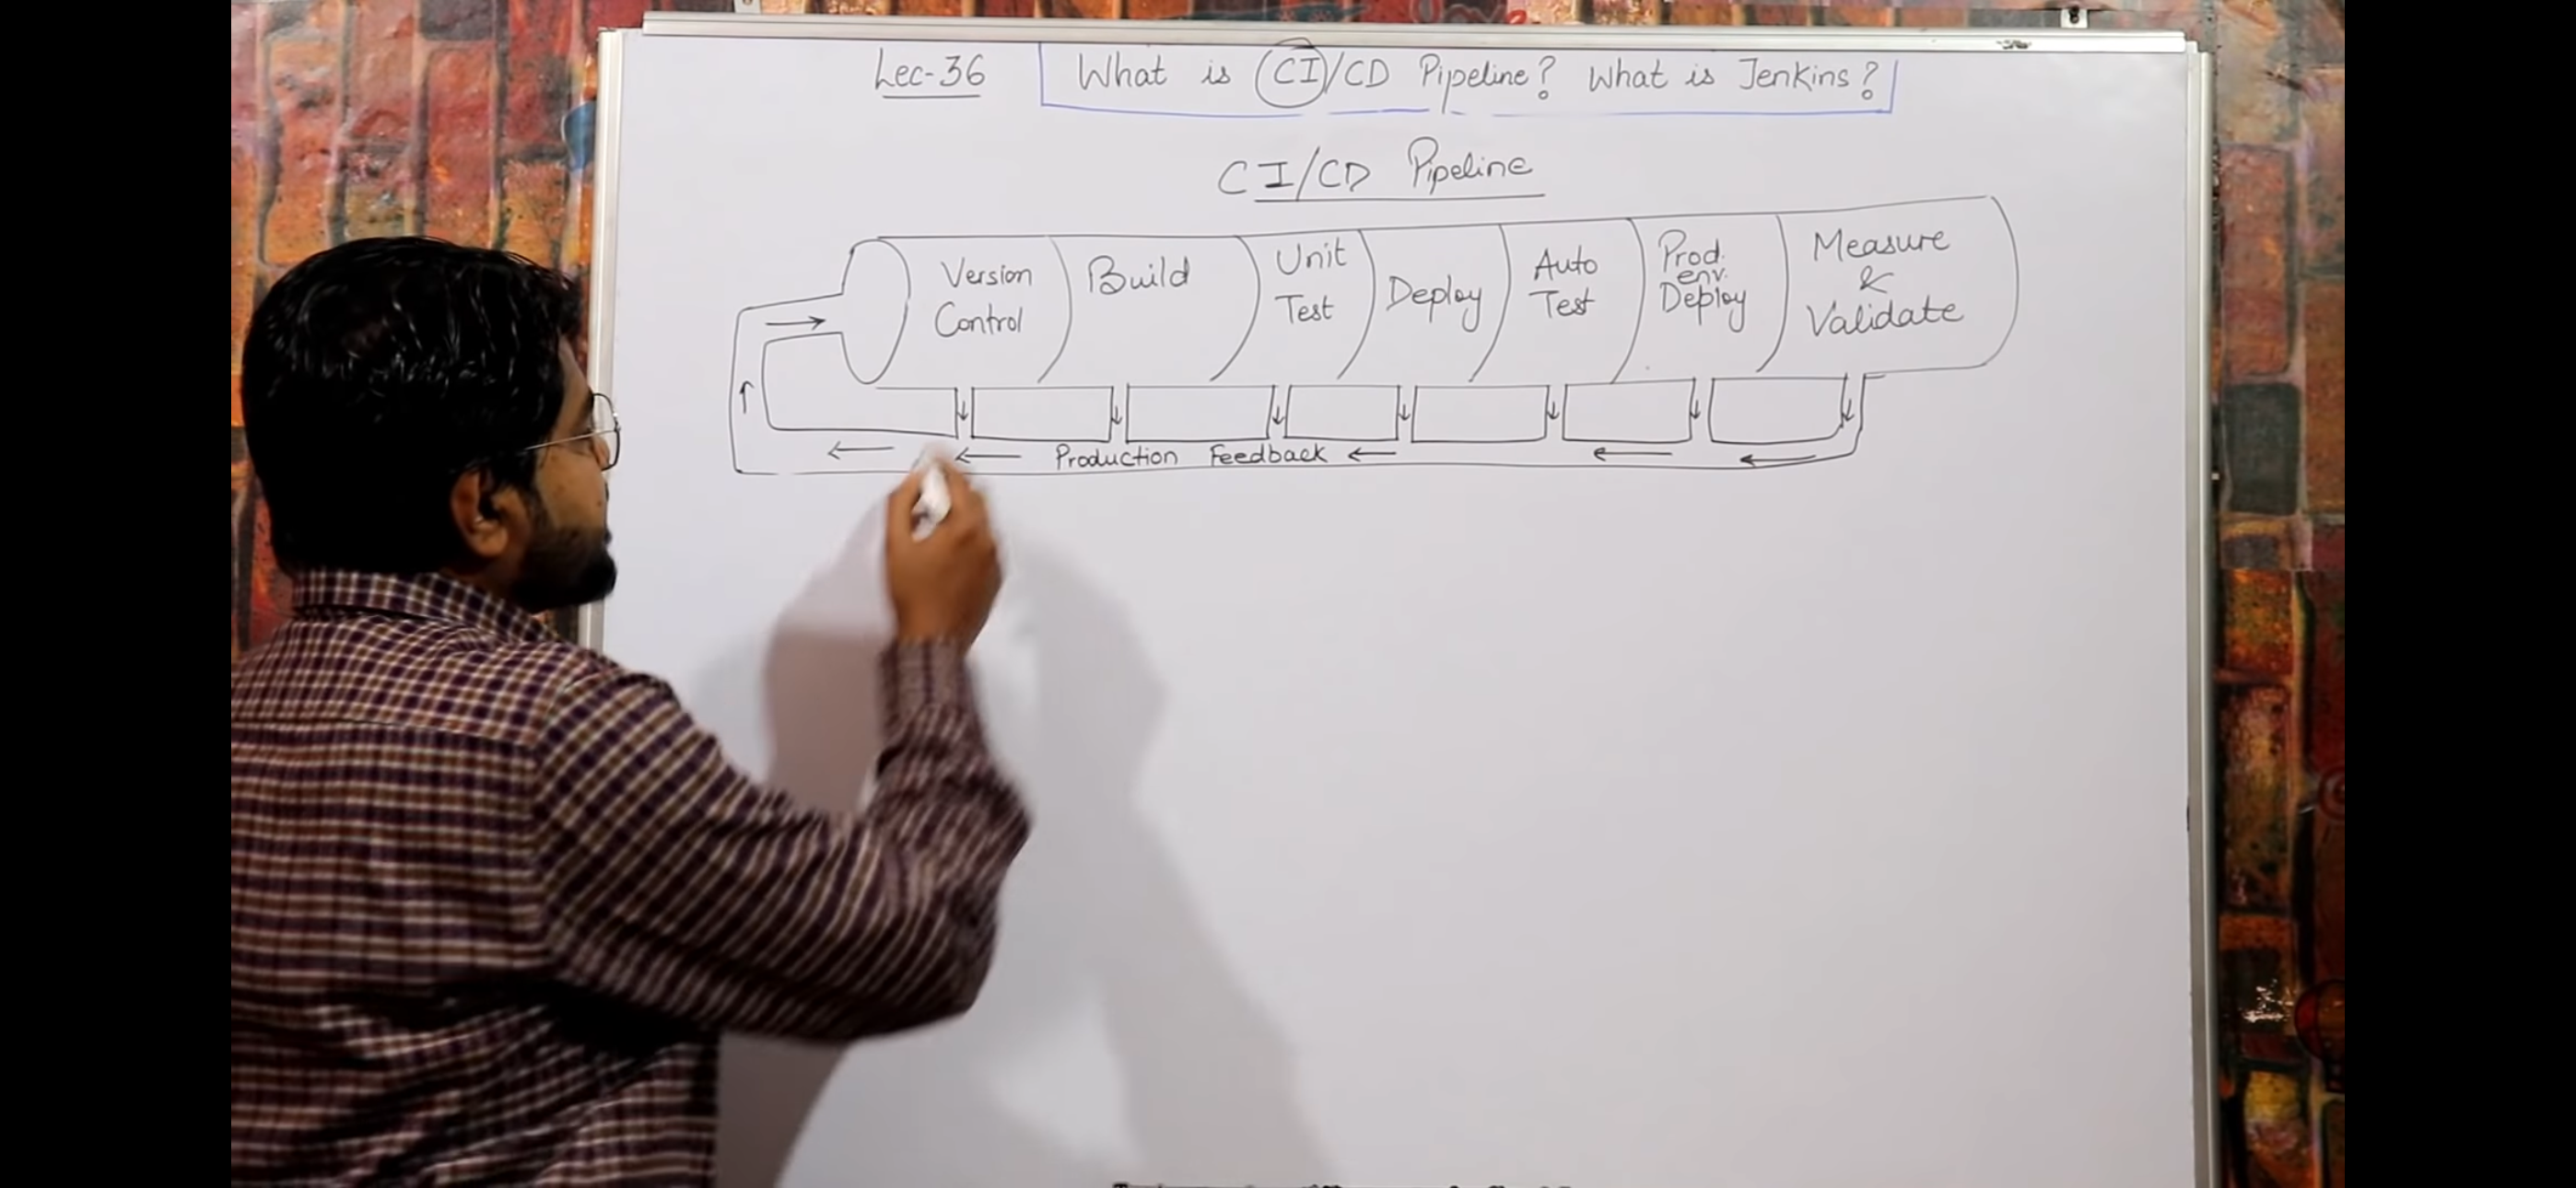 Lec-36 What is CI/CD Pipeline? What is Jenkins?
CI/CD Pipeline
Version Control
Build
Unit Test
Deploy
Auto Test
Prod. env. Deploy
Measure & Validate
Production Feedback